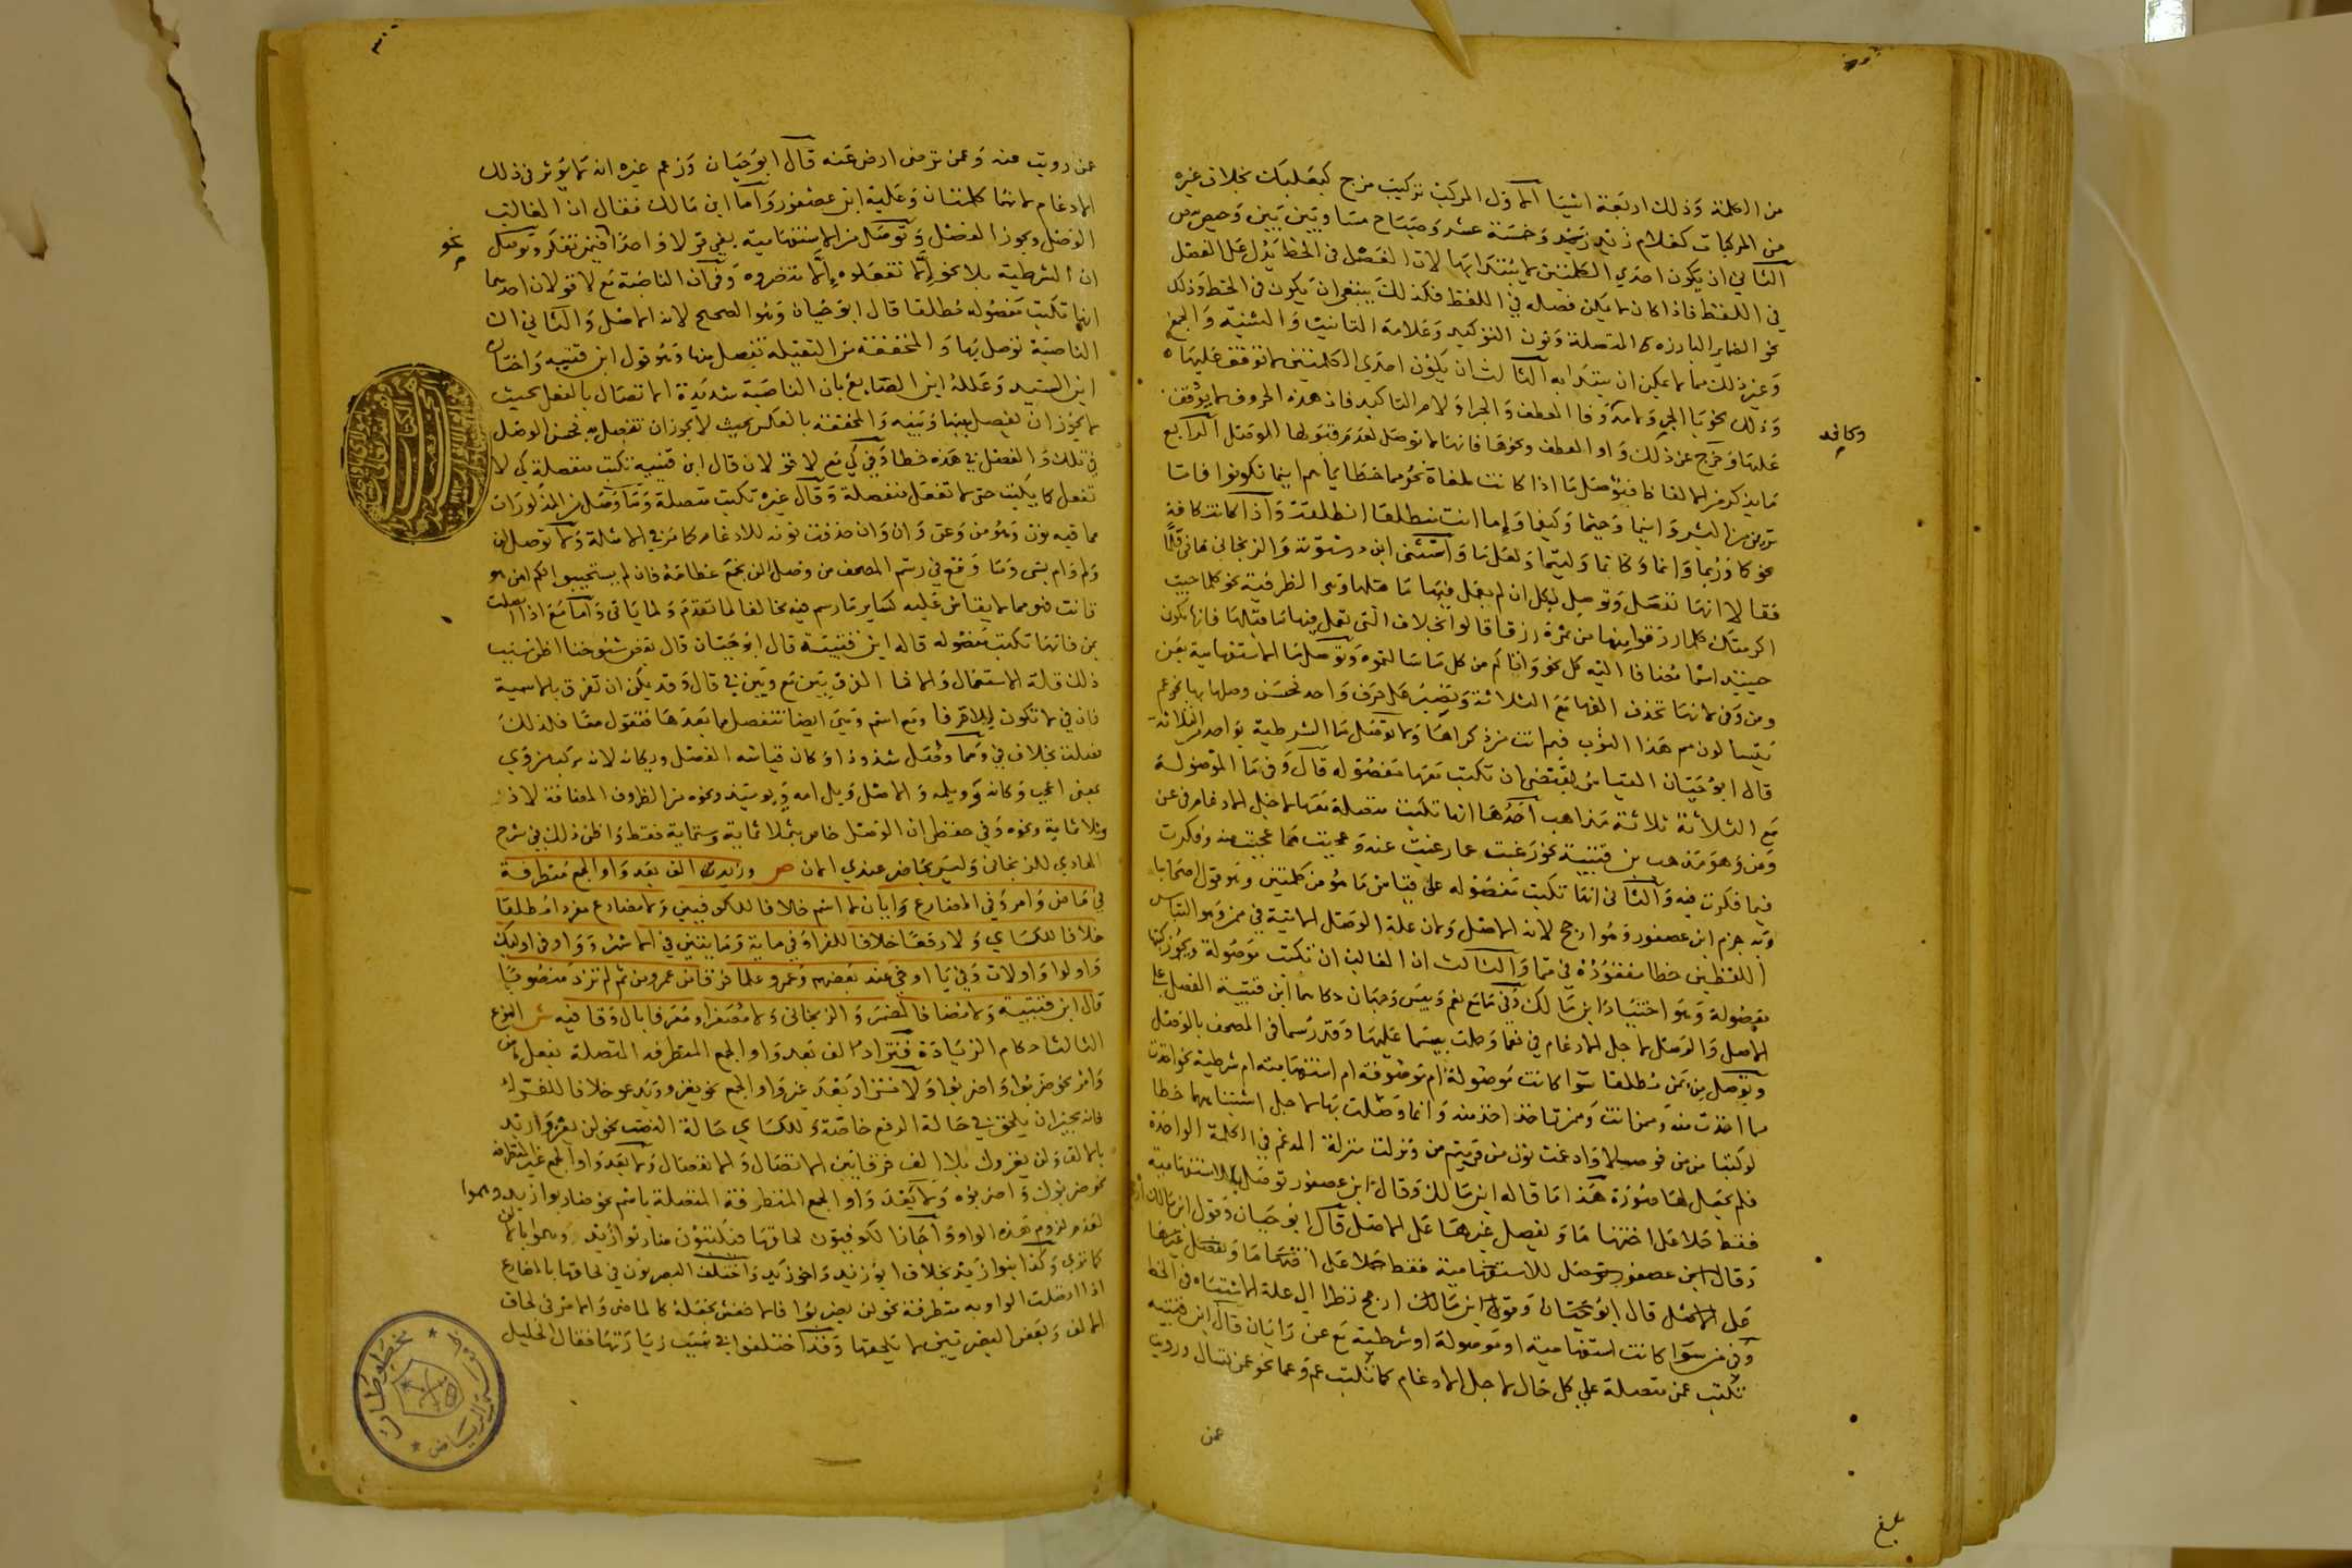 من الكلمة وذلك اربعة اشيا الاول المركب تركيب مزج كبعلبك بخلاف غيره
من المركبات كغلام زيد وخمسة عشر وصباح مسا وبين بين وحيص بيص
الثاني ان يكون احدي الكلمتين لا يبتدا بها لان الفصل في الخط يدل على الفصل
في اللفظ فاذا كان لا يمكن فصله في اللفظ فكذلك ينبغي ان يكون في الخط وذلك
نحو الضماير البارزه المتصلة ونون التوكيد وعلامة التانيث والتثنية والجمع
وغير ذلك مما لا يمكن ان يبتدا به الثالث ان يكون احدي الكلمتين لا توقف عليها
وذلك نحو با الجر ولامه وفا العطف والجزا ولام التاكيد فان هذه الحروف لا يوقف
عليها وخرج عن ذلك واو العطف ونحوها فانها لا توصل لعدم قبولها الوصل الرابع
وكافه
ما يذكر من الالفاظ فيوصل ما اذا كانت ملغاة نحو مما خطاياهم اينما تكونوا فاما
ترين من البشر واينما وحيثما وكيفما واما انت منطلقا انطلقت واذا كانت كافة
نحو كما وربما وانما وكانما وليتما ولعلما واستثنى ابن درستويه والزنجاني ما في قلما
فقالا انها تفصل وتوصل بكل ان لم يعمل فيها ما قبلها وهي الظرفية نحو كلما جيت
اكرمتك كلما رزقوا منها من ثمرة رزقا قالوا بخلاف التي يعمل فيها ما قبلها فانها تكون
حينيذ اسما مضافا اليه كل نحو واتاكم من كل ما سالتموه وتوصل ما الاستفهامية بعن
ومن وفي لانها تحذف الفها مع الثلاثة وتصير على حرف واحد فحسن وصلها بها نحو عم
يتسألون مم هذا الثوب فيم انت من ذكراها ولا توصل ما الشرطية بواحد من الثلاثة
قال ابو حيان القياس يقتضي ان تكتب معها مفصوله قال وفي ما الموصولة
مع الثلاثة ثلاثة مذاهب احدها انها تكتب متصلة معها لاجل الادغام في عن
ومن وهو مذهب بن قتيبة نحو رغبت عما رغبت عنه وعجبت مما عجبت منه وفكرت
فيما فكرت فيه والثاني انها تكتب مفصوله على قياس ما هو من كلمتين وهو قول اصحابنا
وبه جزم ابن عصفور وهو ارجح لانه الاصل ولان علة الوصل الاتية في ممن وهو التباس
اللفظين خطا مفقودة في مما والثالث ان الغالب ان تكتب موصولة ويجوز كتبها
مفصولة وهو اختيار ابن مالك وفي ما مع نعم وبيس وجهان حكاهما ابن قتيبة الفصل على
الاصل والوصل لاجل الادغام في نعما وحملت بيسما عليها وقد رسما في المصحف بالوصل
وتوصل من بمن مطلقا سوا كانت موصولة ام موصوفة ام استفهامية ام شرطية نحو اخذت
مما اخذت منه وممن انت وممن تاخذ اخذ منه وانما وصلت بها لاجل اشتباههما خطا
لو كتبا من من فوصلا وادغمت نون من في ميم من ونزلت منزلة المدغم في الكلمة الواحدة
فلم يجعل لها صورة هذا ما قاله ابن مالك وقال ابن عصفور توصل بالاستفهامية
فقط حملا على اختها ما وتفصل غيرها على الاصل قال ابو حيان وقول ابن مالك
وقال ابن عصفور توصل للاستفهامية فقط حملا على اختها ما وتفصل غيرها
على الاصل قال ابو حيان وقول ابن مالك ارجح نظرا الي علة الاشتباه في الخط
وفي من سوا كانت استفهامية او موصولة او شرطية مع عن رايان قال ابن قتيبه
تكتب عمن متصلة علي كل حال لاجل الادغام كما تكتب عم وعما نحو عمن تسال ورويت
عمن
بلغ
عن رويت عنه وعمن ترضى ارض عنه قال ابو حيان وزعم غيره انه لا يوثر في ذلك
الادغام لانها كلمتان وعليه ابن عصفور واما ابن مالك فقال ان الغالب
الوصل ويجوز الفصل وتوصل من الاستفهامية بفي قولا واحدا فيمن تفكر وتوصل
نحو
ان الشرطية بلا نحو الا تفعلوه الا تنصروه وفي ان الناصبة مع لا قولان احدهما
انها تكتب مفصوله مطلقا قال ابو حيان وهو الصحيح لانه الاصل والثاني ان
الناصبة توصل بها والمخففة من الثقيلة تفصل منها وهو قول ابن قتيبه واختاره
ابن السيد وعلله ابن الضايع بان الناصبة شديدة الاتصال بالفعل بحيث
لا يجوز ان يفصل بينها وبينه والمخففة بالعكس بحيث لا يجوز ان تتصل به فحسن الوصل
في تلك والفصل في هذه خطا وفي كي مع لا قولان قال ابن قتيبه تكتب منفصلة كي لا
تفعل كما يكتب حتى لا تفعل منفصلة وقال غيره تكتب متصلة وما وصل من المذكورات
مما فيه نون وهو من وعن وان وان حذفت نونه للادغام كما مر في الامثلة ولا توصل لن
ولم وام بشي وما وقع في رسم المصحف من وصل الن نجمع عظامه فان لم يستجيبوا لكم امن هو
قانت فهو مما لا يقاس عليه كساير ما رسم فيه مخالفا لما تقدم ولما ياتي واما مع اذا اتصلت
بمن فانها تكتب مفصوله قاله ابن قتيبة قال ابو حيان قال بعض شيوخنا اظن سبب
ذلك قلة الاستعمال والا فما الفرق بين مع وبين في قال وقد يمكن ان تفرق بالاسمية
فان في لا تكون الا حرفا ومع اسم وهي ايضا تنفصل مما بعدها فتقول معا فلذلك
فصلت بخلاف في وشذ وصل وكان قياسه الفصل ويكانه لانه مركب من وي
بمعنى اعجب وكانه وويلمه والاصل ويل امه ويوميذ ونحوه من الظروف المضافة لاذ
وثلاثماية ونحوه وفي حفظي ان الوصل خاص بثلاثماية وستماية فقط واظن ذلك في شرح
الهادي للزنجاني وليس بحاضر عندي الان ص وزيدت الف بعد واو الجمع متطرفة
في ماض وامر وفي المضارع رايان لا اسم خلافا للكوفيين ولا مضارع مفرد مطلقا
خلافا للكساي ولا رفعا خلافا للفرا وفي ماية ومايتين في الاشهر وواو في اوليك
واولوا واولات وفي يا اوخي عند بعضهم وعمرو علما فرقا من عمر ومن ثم لم تزد منصوبا
قال ابن قتيبة ولا مضافا لمضمر والزنجاني ولا مصغرا ومعرفا بال وقافيه ش النوع
الثالث احكام الزيادة فتزاد الف بعد واو الجمع المتطرفه المتصلة بفعل ماض
وامر نحو ضربوا واضربوا ولا تزاد بعد غير واو الجمع نحو يغزو ويدعو خلافا للفرا
فانه يجيز ان يلحق في حالة الرفع خاصة وللكساي حالة النصب نحو لن يغزوا زيد
بالالف ولن يغزوك بلا الف فرقا بين الاتصال والانفصال ولا بعد واو الجمع غير المتطرفه
نحو ضربوك واضربوه ولا بعد واو الجمع المتطرفة المتصلة باسم نحو ضاربوا زيد وهموا
لعدم لزوم هذه الواو واجاز الكوفيون لحاقها فيكتبون ضاربوا زيد وهموا بالالف
كما تري وكذا بنوا زيد بخلاف ابو زيد واخو زيد واختلف البصريون في لحاقها بالمضارع
اذا اتصلت الواو به متطرفة نحو لن يضربوا فالاخفش يجعله كالماضي والامر في لحاق
الالف وبعض البصريين لا يلحقها وقد اختلفوا في سبب زيادتها فقال الخليل
مخطوطات
الرياض